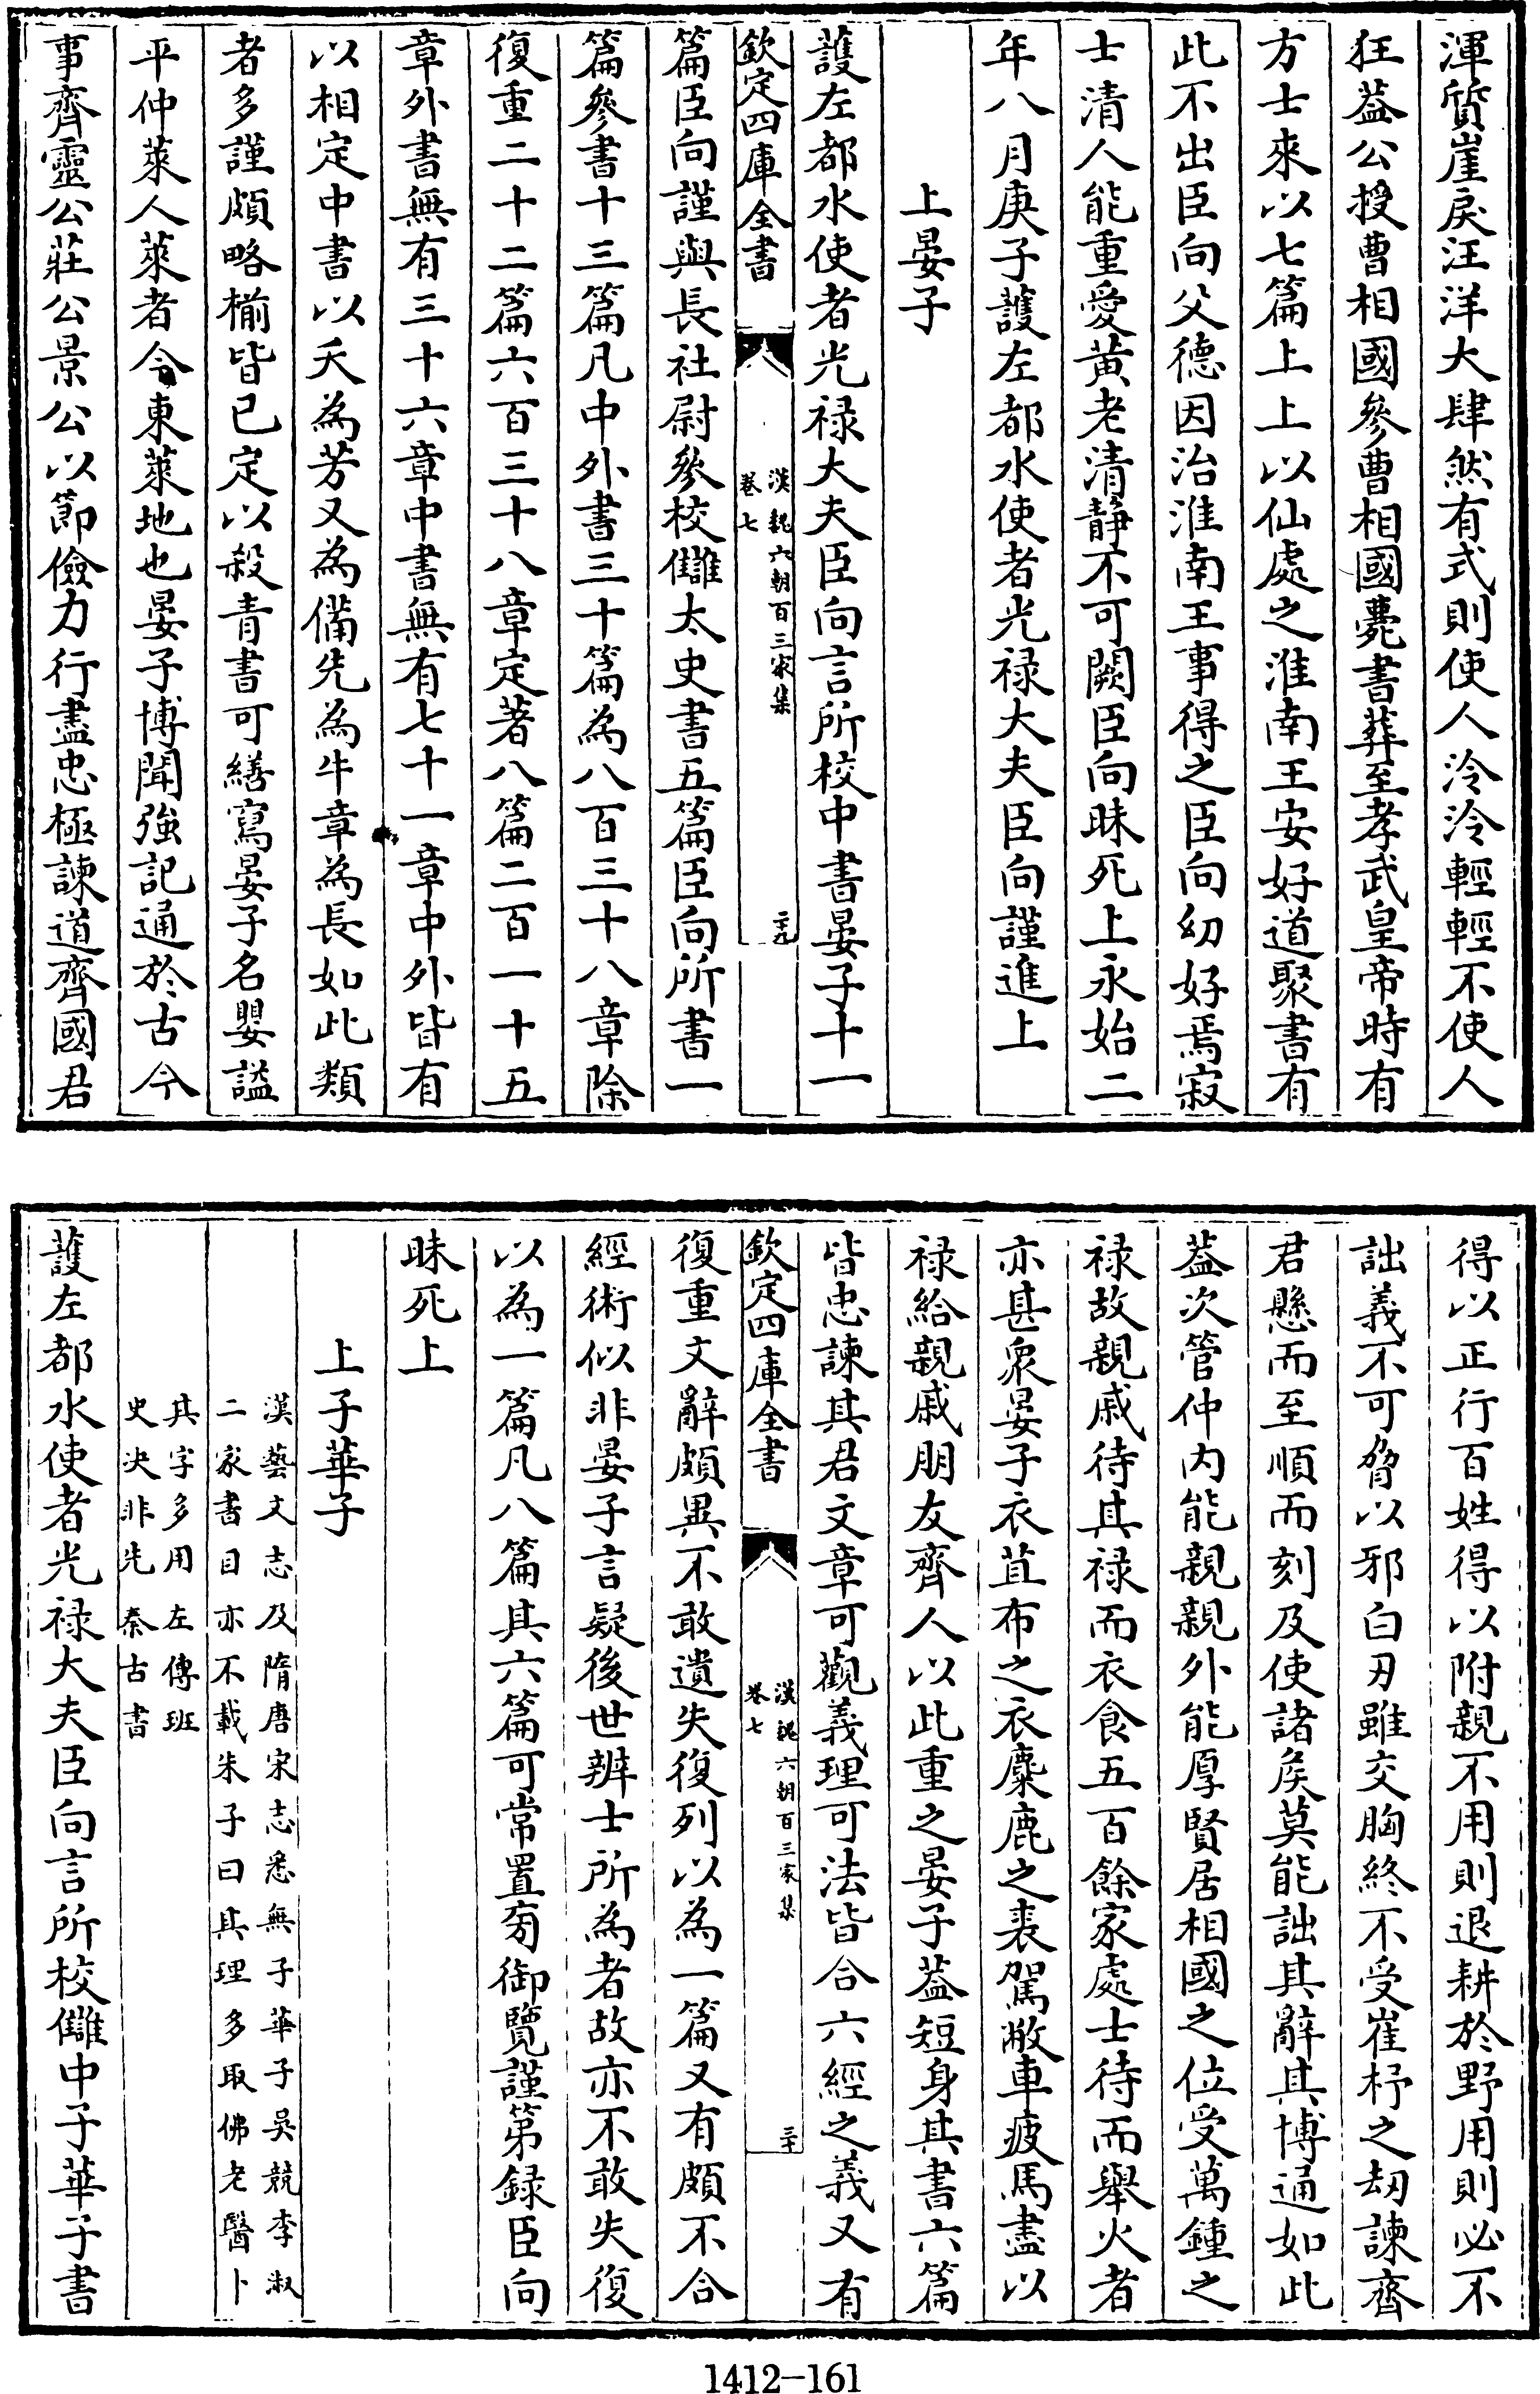 渾質崖戾汪洋大肆然有式則使人泠泠輕輕不使人
狂葢公授曹相國參曹相國薨書葬至孝武皇帝時有
方士來以七篇上上以仙處之淮南王安好道聚書有
此不出臣向父德因治淮南王事得之臣向幼好焉寂
士清人能重愛黃老清靜不可闕臣向昧死上永始二
年八月庚子護左都水使者光祿大夫臣向謹進上
上晏子
護左都水使者光祿大夫臣向言所校中書晏子十一
欽定四庫全書
漢魏六朝百三家集
卷七
二十九
篇臣向謹與長社尉參校讎太史書五篇臣向所書一
篇參書十三篇凡中外書三十篇為八百三十八章除
復重二十二篇六百三十八章定著八篇二百一十五
章外書無有三十六章中書無有七十一章中外皆有
以相定中書以夭為芳又為備先為牛章為長如此類
者多謹頗略椾皆已定以殺青書可繕寫晏子名嬰謚
平仲萊人萊者今東萊地也晏子博聞強記通於古今
事齊靈公莊公景公以節儉力行盡忠極諫道齊國君
得以正行百姓得以附親不用則退耕於野用則必不
詘義不可脅以邪白刃雖交胸終不受崔杼之刼諫齊
君懸而至順而刻及使諸侯莫能詘其辭其博通如此
葢次管仲內能親親外能厚賢居相國之位受萬鍾之
祿故親戚待其祿而衣食五百餘家處士待而舉火者
亦甚衆晏子衣苴布之衣麋鹿之裘駕敝車疲馬盡以
祿給親戚朋友齊人以此重之晏子葢短身其書六篇
皆忠諫其君文章可觀義理可法皆合六經之義又有
欽定四庫全書
漢魏六朝百三家集
卷七
三十
復重文辭頗異不敢遺失復列以為一篇又有頗不合
經術似非晏子言疑後世辨士所為者故亦不敢失復
以為一篇凡八篇其六篇可常置旁御覽謹第録臣向
昧死上
上子華子
漢藝文志及隋唐宋志悉無子華子吳競李淑
二家書目亦不載朱子曰其理多取佛老醫卜
其字多用左傳班
史決非先秦古書
護左都水使者光祿大夫臣向言所校讎中子華子書
1412-161